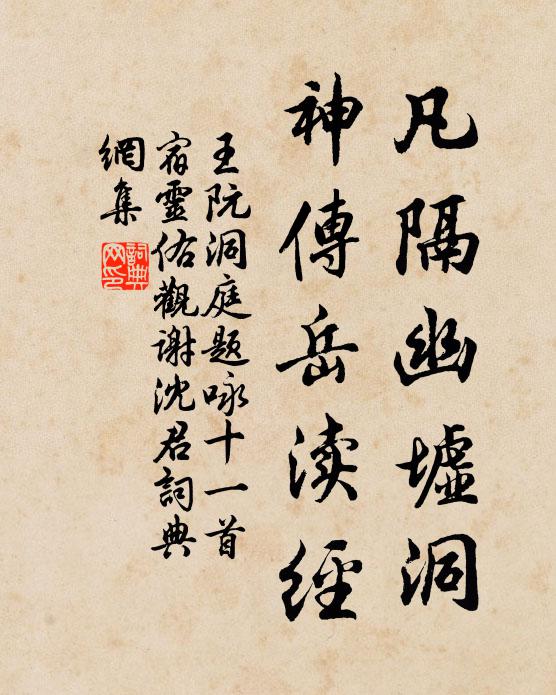 凡隔幽墟洞
神傳岳渎經
王阮洞庭题咏十一首
宿靈佑觀謝沈君詞典
網集
詞典网印